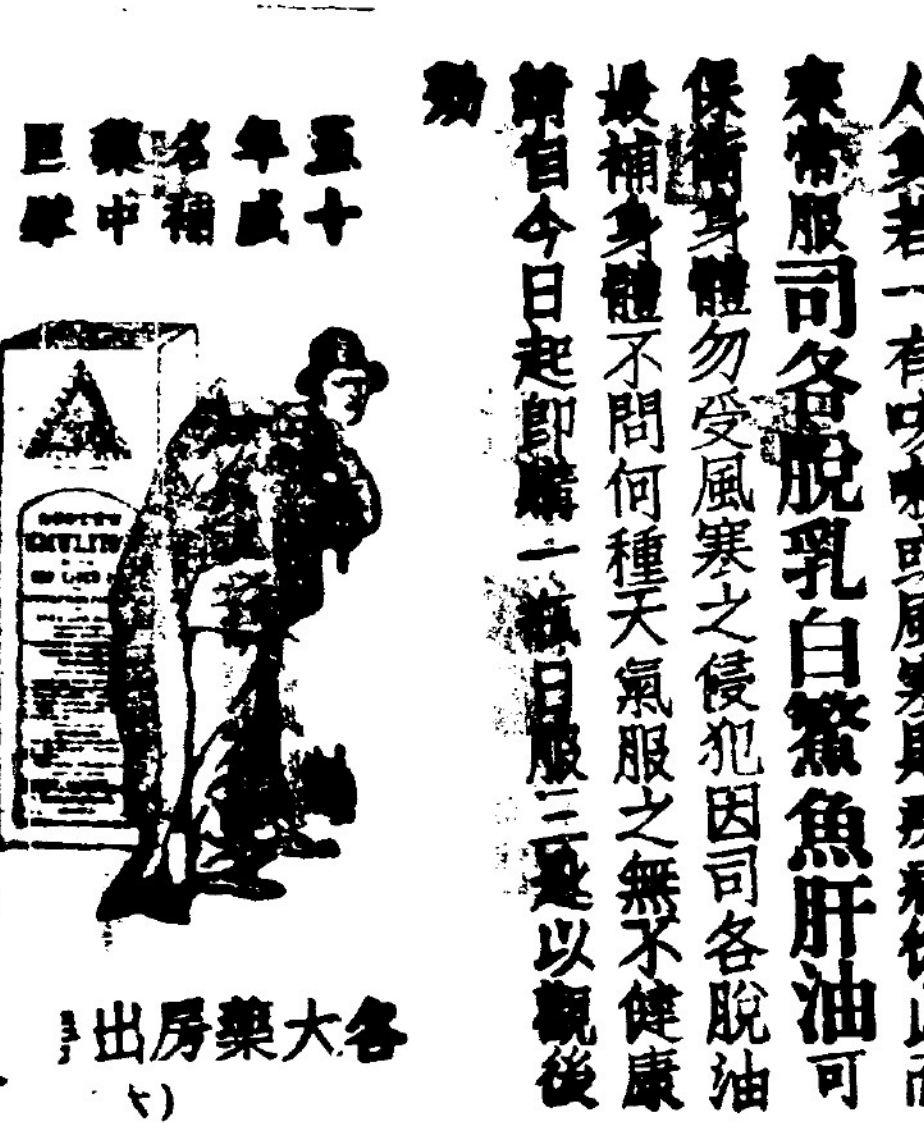 人身若一有咳嗽或風寒則疾病從此而
來常服司各脫乳白鰵魚肝油可
保衛身體勿受風寒之侵犯因司各脫油
最補身體不問何種天氣服之無不健康
請自今日起即購一瓶日服三匙以觀後
効
五十
年盛
名補
藥中
巨擘
各大藥房出